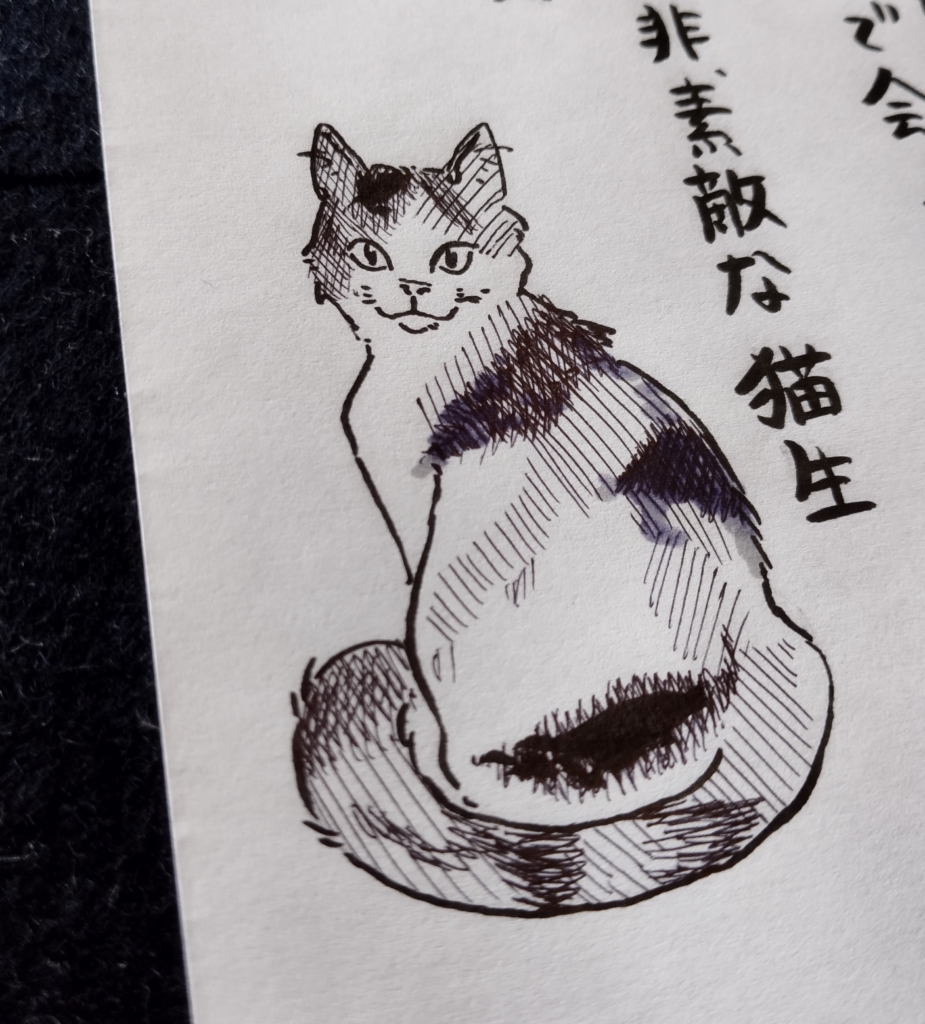 で会
非素敵な猫生